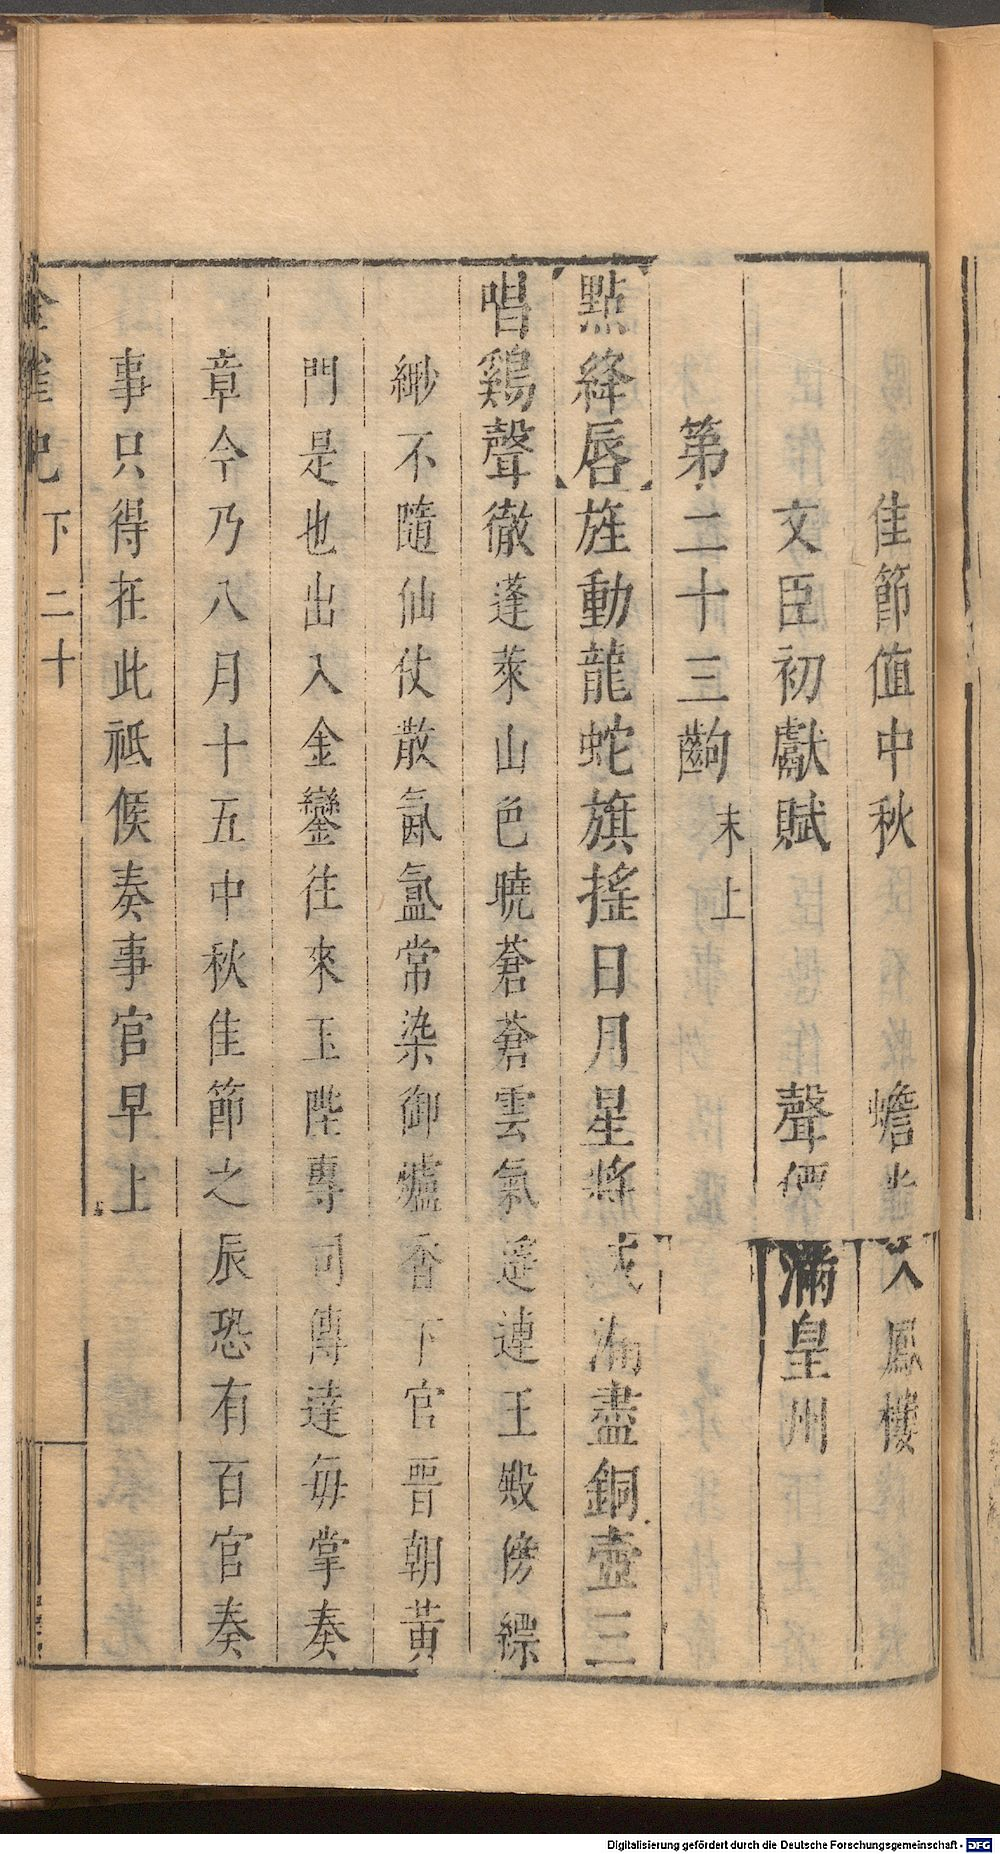 佳節值中秋　蟾光入鳳樓
文臣初獻賦　聲價滿皇州
第二十三齣 末上
點絳唇旌動龍蛇旗搖日月星將戌漏盡銅壺三
唱鷄聲徹蓬萊山色曉蒼蒼雲氣遙連王殿傍縹
緲不隨仙仗散氤氳常染御爐香下官晋朝黃
門是也出入金鑾往來玉陛專司傳達每掌奏
章今乃八月十五中秋佳節之辰恐有百官奏
事只得在此祗候奏事官早上
金雀記 下 二十
Digitalisierung gefördert durch die Deutsche Forschungsgemeinschaft - DFG